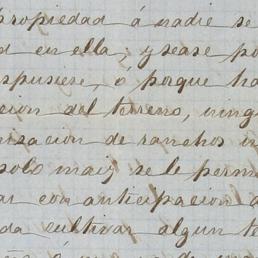 propiedad á nadie se
en ella, y sease po
spusiese, ó porque ha
cion del terreno, ning
izacion de ranchos in
solo maiz se le perm
ar con anticipacion a
da cultivar algun te